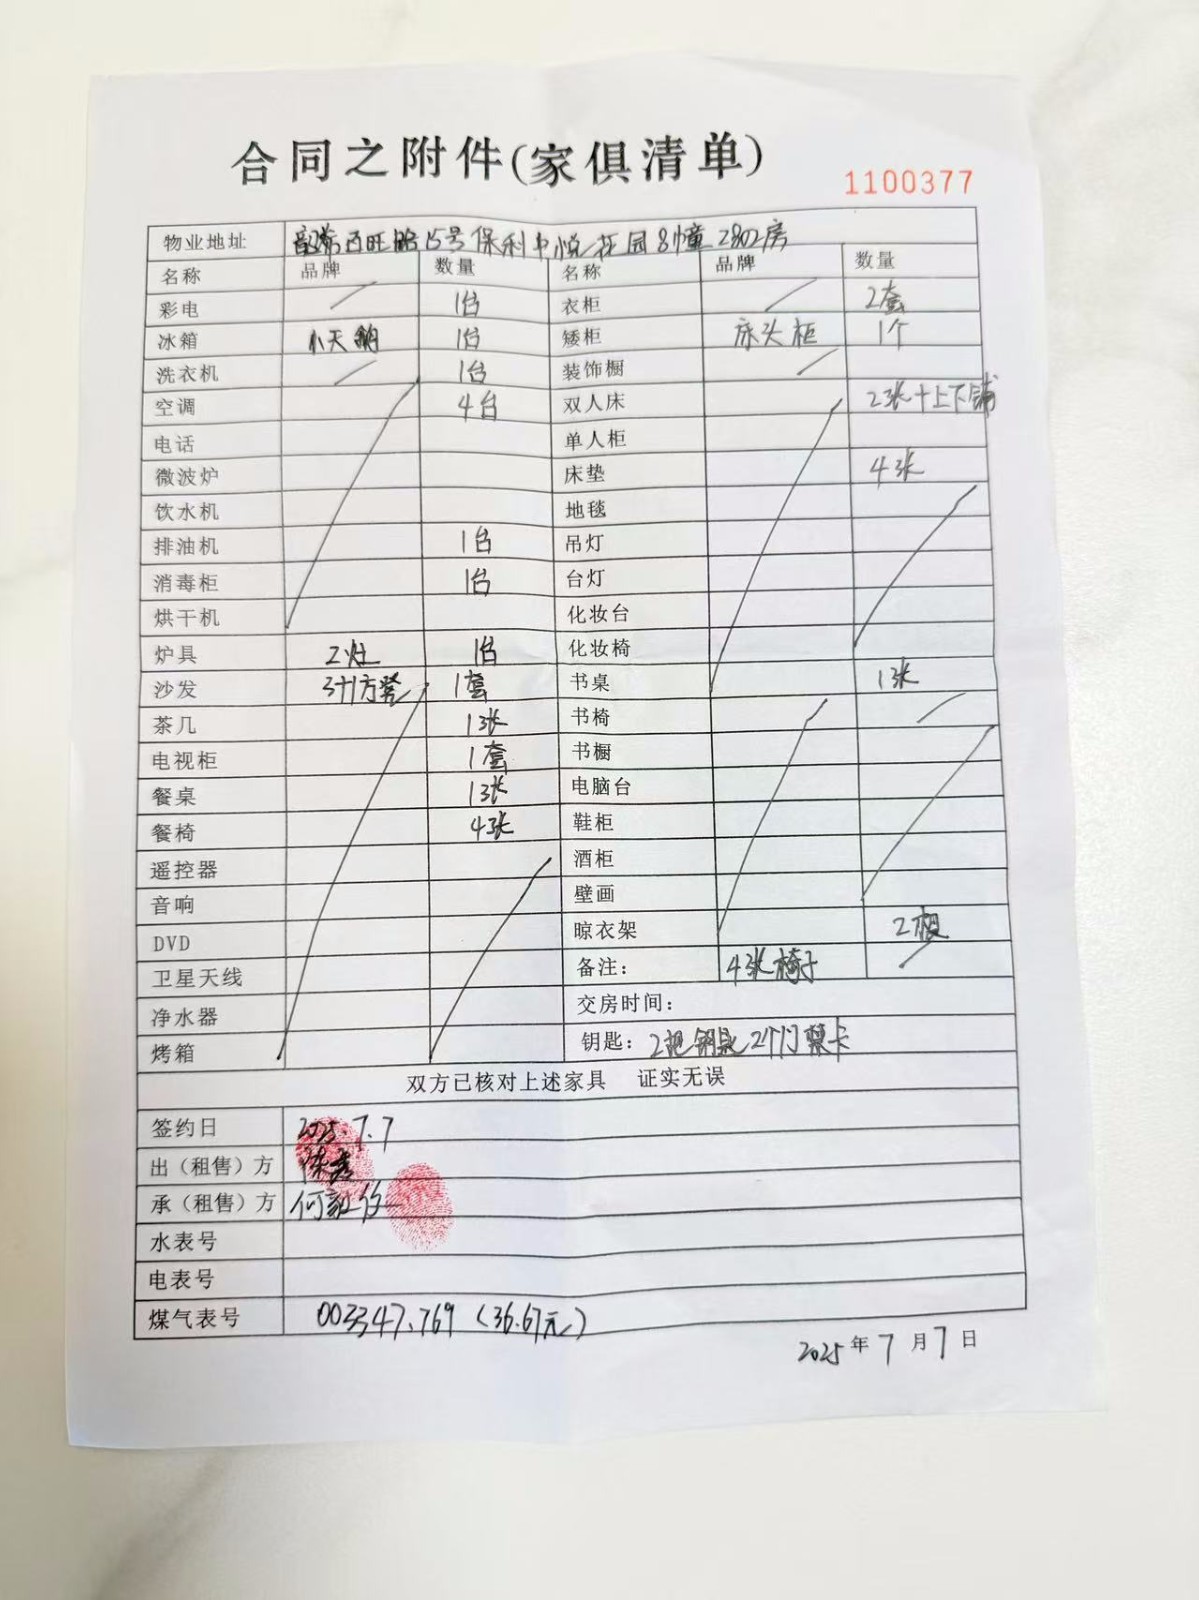 合同之附件(家俱清单)
1100377
物业地址 百旺路15号保利中悦花园8幢2802房
名称 品牌 数量 名称 品牌 数量
彩电 1台 衣柜 2套
冰箱 小天鹅 1台 矮柜 床头柜 1个
洗衣机 1台 装饰橱
空调 4台 双人床 2张+上下铺
电话 单人柜
微波炉 床垫 4张
饮水机 地毯
排油机 1台 吊灯
消毒柜 1台 台灯
烘干机 化妆台
炉具 2灶 1台 化妆椅
沙发 1套 书桌 1张
茶几 1张 书椅
电视柜 1套 书橱
餐桌 1张 电脑台
餐椅 4张 鞋柜
遥控器 酒柜
音响 壁画
DVD 晾衣架 2根
卫星天线 备注: 4张椅子
净水器 交房时间:
烤箱 钥匙: 2把钥匙2个门禁卡
双方已核对上述家具 证实无误
签约日 2025.7.7
出(租售)方
承(租售)方
水表号
电表号
煤气表号 003347.769 (36.67元)
2025年7月7日